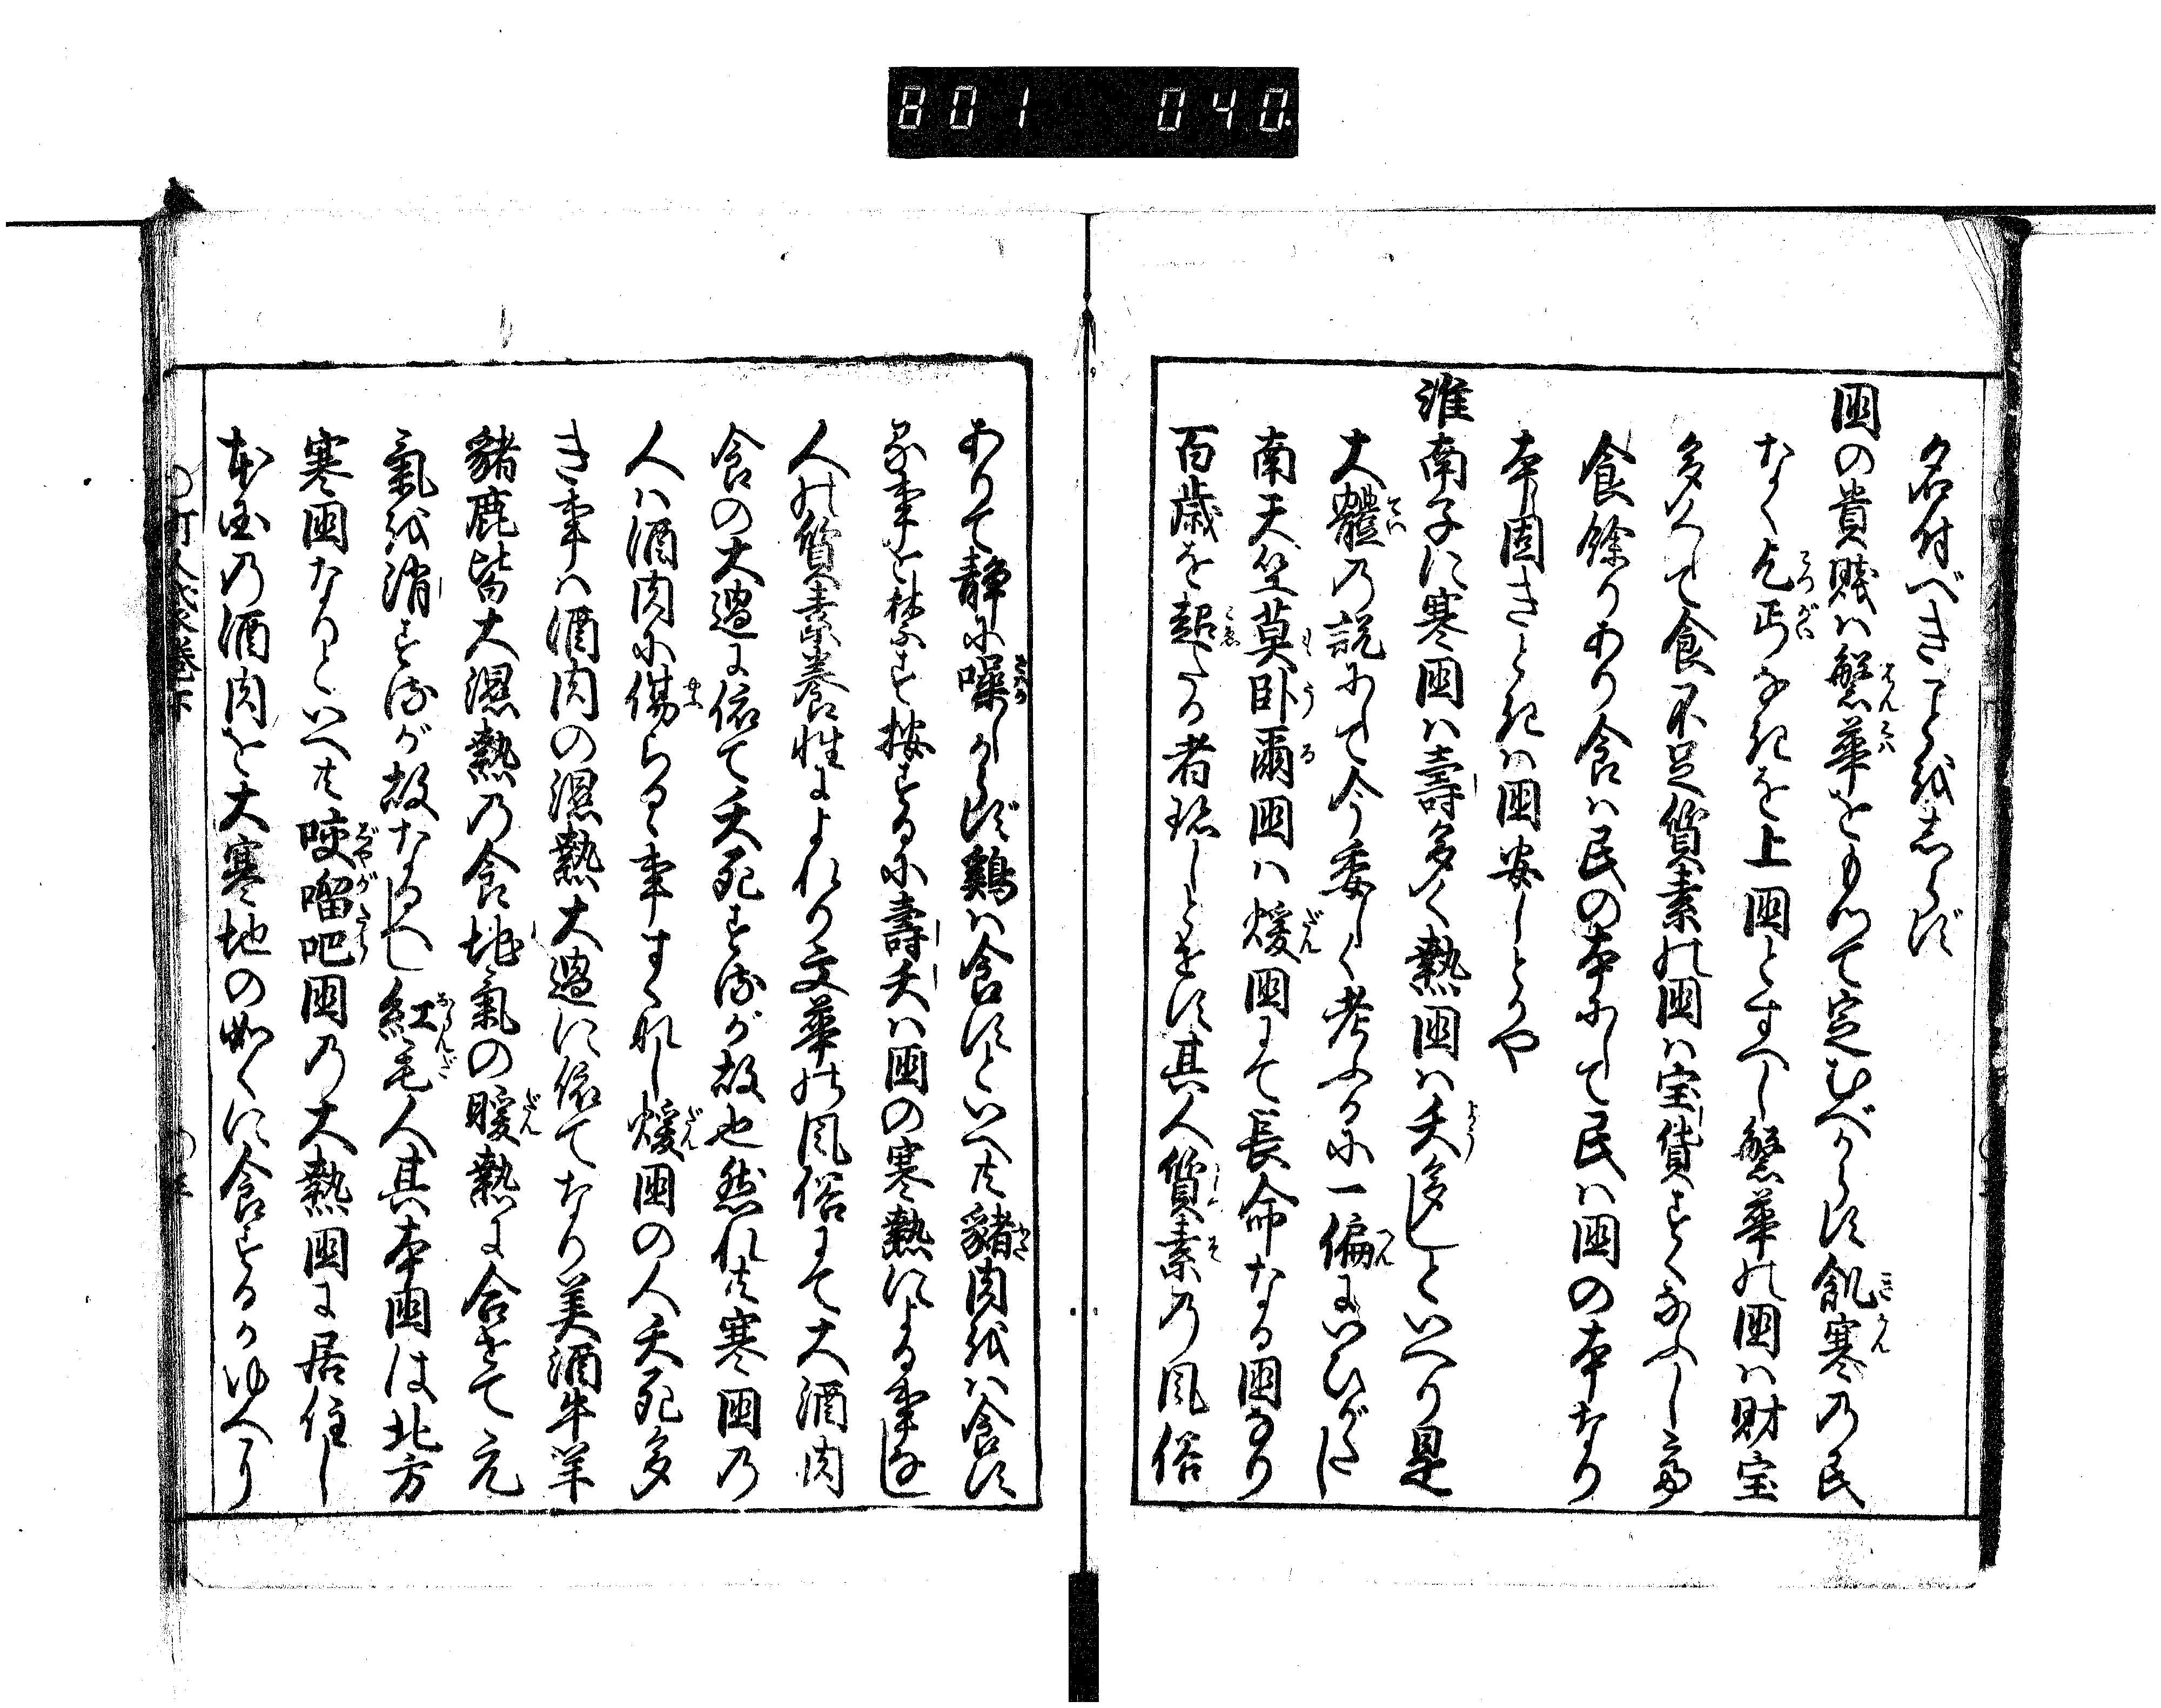 801 040
名付べきことをしらず
国の貴賤は繁華をもつて定むべからず飢寒の民
なく乞丐なきを上国とすべし繁華の国は財宝
多くして食不足質素の国は宝貨すくなふして
食餘りあり食は民の本にして民は国の本なり
本固きときは国安しとかや
淮南子に寒国は壽多く熱国は夭多しといへり是
大體の説にして今委しく考ふるに一偏にいひがたし
南天竺莫臥爾国は煖国にて長命なる国なり
百歳を超たる者珍しとせず其人質素の風俗
ありて静に噪しからず鶏は食すといへ共豬肉をば食す
る事を禁ず按ずるに壽夭は国の寒熱による事なし
人の質素養性によれり文華の風俗にて大酒肉
食の大過に依て夭死するが故也然れ共寒国の
人は酒肉に傷らるゝ事すくなし煖国の人夭死多
き事は酒肉の濕熱大過に依てなり美酒牛羊
豬鹿皆大濕熱の食地氣の暖熱に合せて元
氣を消するが故なるべし紅毛人其本国は北方
寒国なりといへ共咬𠺕吧国の大熱国に居住し
本国の酒肉を大寒地の如くに食するかゆへに
町人嚢巻下